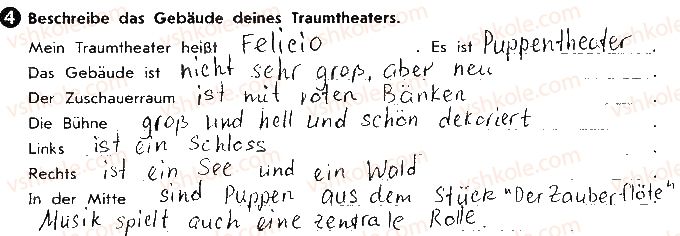 4 Beschreibe das Gebäude deines Traumtheaters.
Mein Traumtheater heißt Felicio. Es ist Puppentheater.
Das Gebäude ist nicht sehr groß, aber neu.
Der Zuschauerraum ist mit roten Bänken.
Die Bühne groß und hell und schön dekoriert.
Links ist ein Schloss.
Rechts ist ein See und ein Wald.
In der Mitte sind Puppen aus dem Stück "Der Zauberflöte"
Musik spielt auch eine zentrale Rolle.